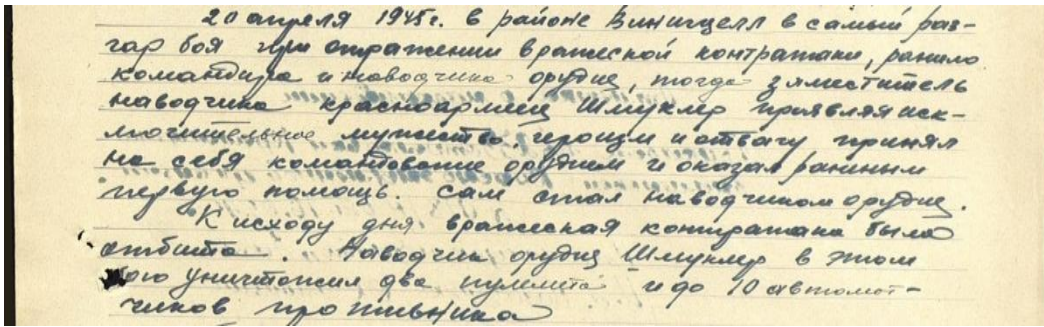 20 апреля 1945г. в районе Винигцелл в самый раз-
гар боя при отражении вражеской контратаки, ранило
командира и наводчика орудия, тогда заместитель
наводчика красноармеец Шмуклер проявляя иск-
лючительное мужество, героизм и отвагу принял
на себя командование орудием и оказал раненым
первую помощь. Сам стал наводчиком орудия.
К исходу дня вражеская контратака была
отбита. Наводчик орудия Шмуклер в этом
бою уничтожил два пулемета и до 10 автомат-
чиков противника